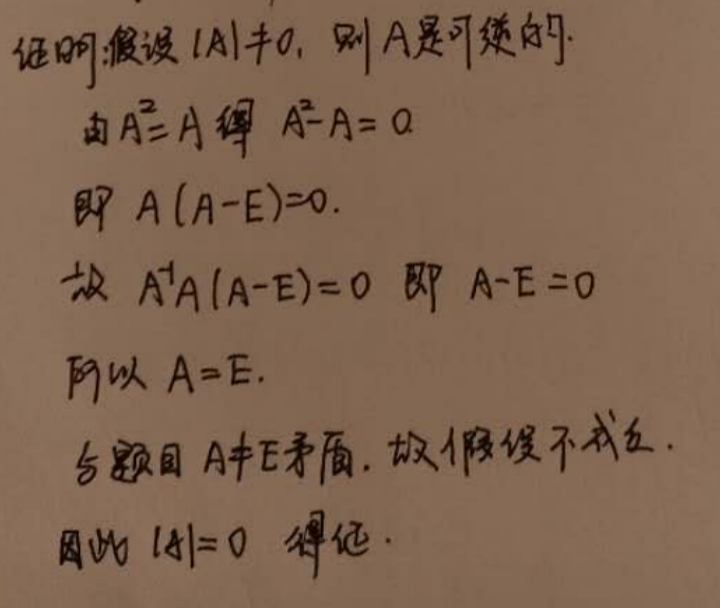 证明:假设 |A|≠0, 则 A是可逆的.
由 A²=A 得 A²-A=0
即 A(A-E)=0.
故 A⁻¹A(A-E)=0 即 A-E=0
所以 A=E.
与题目 A≠E矛盾. 故假设不成立.
因此 |A|=0 得证.